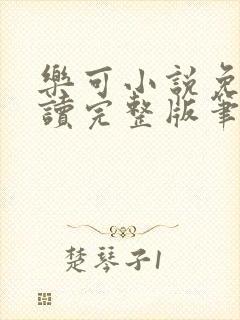 樂可小說免
讀完整版筆
楚琴子1